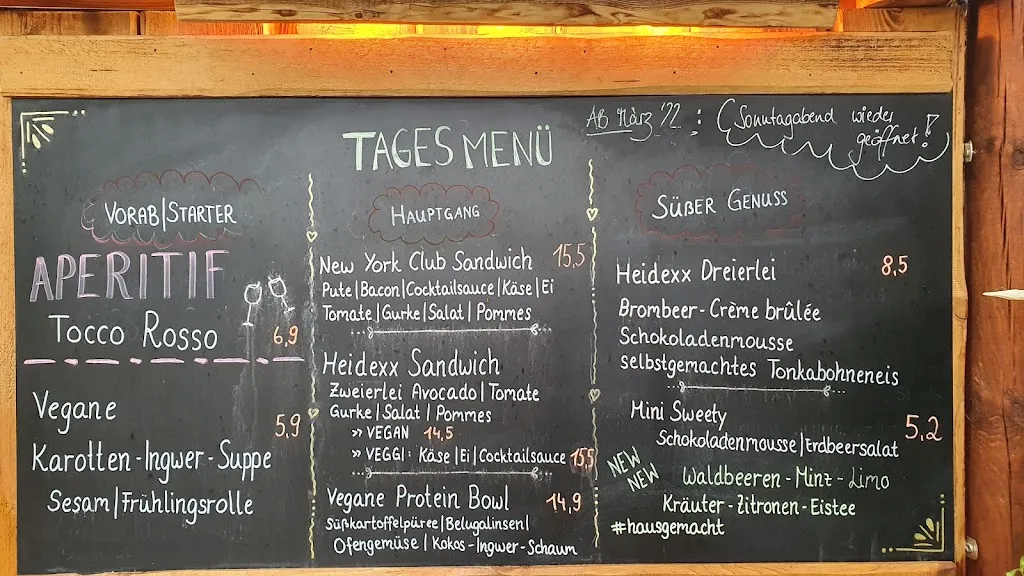 TAGESMENÜ
AB März '22 : Sonntagabend wieder
geöffnet!
VORAB|STARTER
APERITIF
Tocco Rosso 6,9
Vegane
5,9
Karotten-Ingwer-Suppe
Sesam|Frühlingsrolle
HAUPTGANG
New York Club Sandwich 15,5
Pute|Bacon|Cocktailsauce|Käse|Ei
Tomate|Gurke|Salat|Pommes
Heidexx Sandwich
Zweierlei Avocado|Tomate
Gurke|Salat|Pommes
» VEGAN 14,5
» VEGGI: Käse|Ei|Cocktailsauce 15,5
Vegane Protein Bowl 14,9
Süßkartoffelpüree|Belugalinsen|
Ofengemüse|Kokos-Ingwer-Schaum
SÜßER GENUSS
Heidexx Dreierlei 8,5
Brombeer-Crème brûlée
Schokoladenmousse
selbstgemachtes Tonkabohneneis
Mini Sweety 5,2
Schokoladenmousse|Erdbeersalat
NEW
NEW
Waldbeeren-Minz-Limo
Kräuter-Zitronen-Eistee
#hausgemacht